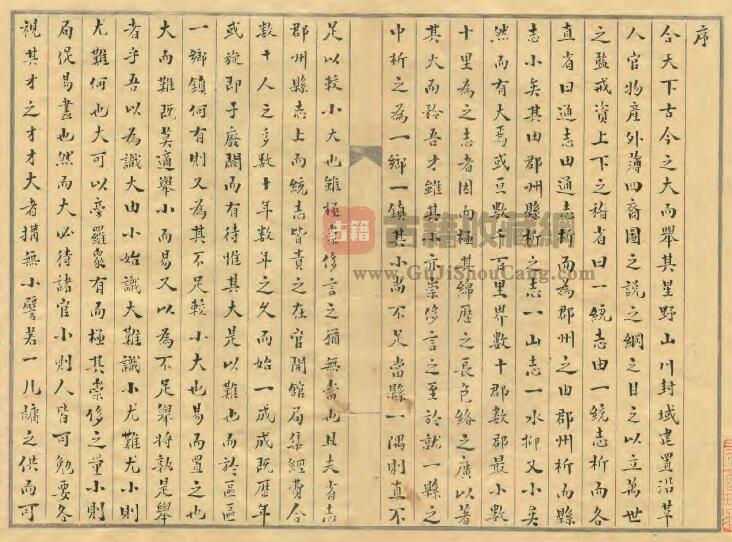 序
今天下古今之大而舉其星野山川封域建置沿革
人官物產外薄四裔圖之說之綱之目之以立萬世
之鑒戒資上下之
者曰一統志由一統志析而各
直省曰通志由通志析而為郡州之由郡州析而縣
志小矣其由郡州縣析之志一山志一水抑又小矣
然而有大焉或亘數
百里界數十郡數郡最小數
十里為之志者因而極其綿歷之長包絡之廣以著
其大而矜吾才雖其小亦崇侈言之至於就一縣之
中析之為一鄉一鎮其小尚不足當縣一隅則直不
足以較小大也雖極崇侈言之猶無當也且夫省志
郡州縣志上而統志皆責之在官開館局集經費合
數十人之多數十年數年之久而始一成或既歷年
或旋即于廢闕而有待惟其大是以難也而於區區
一鄉鎮何有則又為其不足較小大也易而置之也
大而難既莫適舉小而易又以為不足舉將孰是舉
者乎吾以為識大由小始識大難識小尤難尤小則
尤難何也大可以旁羅眾有而極其崇侈之量小則
局促易盡也然而大必待諸官小則人皆可勉要各
視其才之才才大者搆無小譬若一几
之供而可
古籍收藏網
www.GuJiShouCang.com